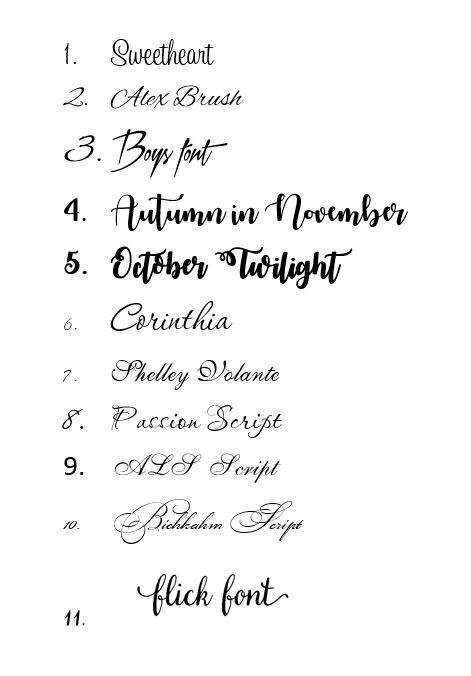 1. Sweetheart
2. Alex Brush
3. Boys font
4. Autumn in November
5. October Twilight
6. Corinthia
7. Shelley Volante
8. Passion Script
9. ALS Script
10. Bickham Script
11. flick font